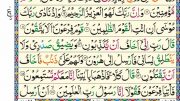 مُّؤْمِنِيْنَ وَاِنَّ رَبَّكَ لَهُوَ الْعَزِيْزُ الرَّحِيْمُ وَاِذْ نَادٰى رَبُّكَ
مُوْسٰٓى اَنِ ائْتِ الْقَوْمَ الظّٰلِمِيْنَ قَوْمَ فِرْعَوْنَ اَلَا يَتَّقُوْنَ
قَالَ رَبِّ اِنِّيْٓ اَخَافُ اَنْ يُّكَذِّبُوْنِ وَيَضِيْقُ صَدْرِيْ وَلَا
يَنْطَلِقُ لِسَانِيْ فَاَرْسِلْ اِلٰى هٰرُوْنَ وَلَهُمْ عَلَيَّ ذَنْۢبٌ فَاَخَافُ
اَنْ يَّقْتُلُوْنِ قَالَ كَلَّا فَاذْهَبَا بِاٰيٰتِنَآ اِنَّا مَعَكُمْ مُّسْتَمِعُوْنَ
فَاْتِيَا فِرْعَوْنَ فَقُوْلَآ اِنَّا رَسُوْلُ رَبِّ الْعٰلَمِيْنَ اَنْ اَرْسِلْ